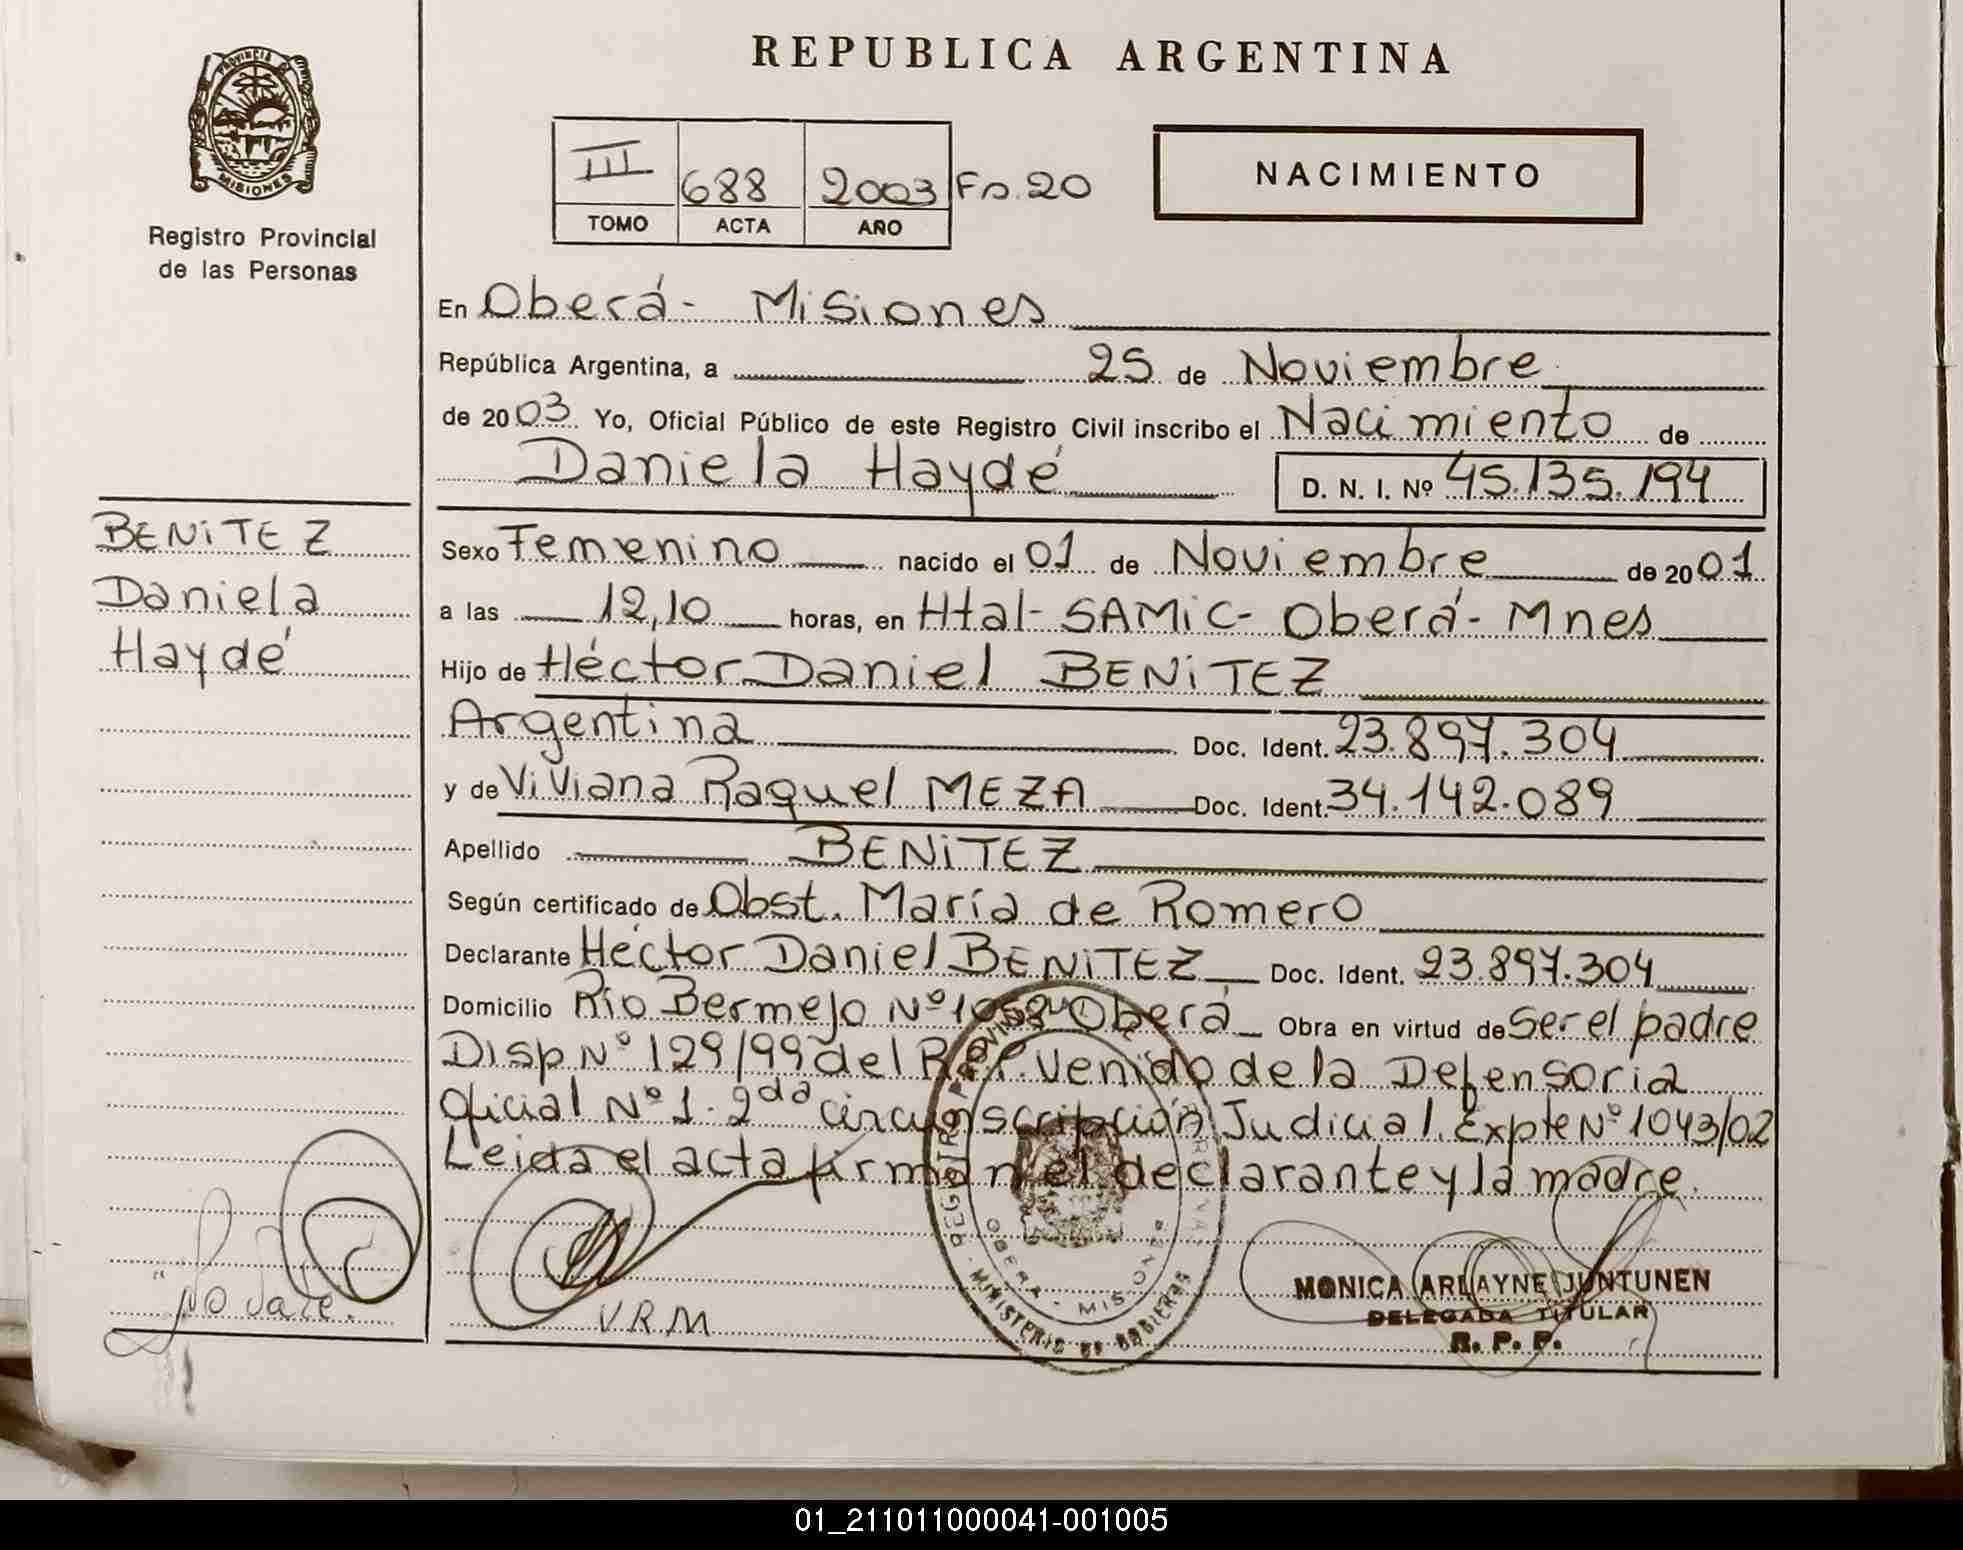 REPUBLICA ARGENTINA
PROVINCIA DE
MISIONES
Registro Provincial
de las Personas
III 688 2003 Fo. 20
TOMO ACTA AÑO
NACIMIENTO
En Oberá- Misiones
República Argentina, a 25 de Noviembre
de 2003 Yo, Oficial Público de este Registro Civil inscribo el Nacimiento de
Daniela Haydé D. N. I. Nº 45.135.194
BENITEZ
Daniela
Haydé
Sexo Femenino nacido el 01 de Noviembre de 2001
a las 12,10 horas, en Htal- SAMIC- Oberá- Mnes
Hijo de Héctor Daniel BENITEZ
Argentina Doc. Ident. 23.897.304
y de Viviana Raquel MEZA Doc. Ident. 34.142.089
Apellido BENITEZ
Según certificado de Obst. María de Romero
Declarante Héctor Daniel BENITEZ Doc. Ident. 23.897.304
Domicilio Río Bermejo Nº 1058 Oberá Obra en virtud de Ser el padre
Disp Nº 129/99 del R.P.P. Venido de la Defensoria
Oficial Nº 1. 2da circunscripción Judicial. Expte Nº 1043/02
Leida el acta firman el declarante y la madre.
"No Vale.
V R M
OBERA - MISIONES
MINISTERIO DE GOBIERNO
MONICA ARLAYNE JUNTUNEN
DELEGADA TITULAR
R. P. P.
01_211011000041-001005